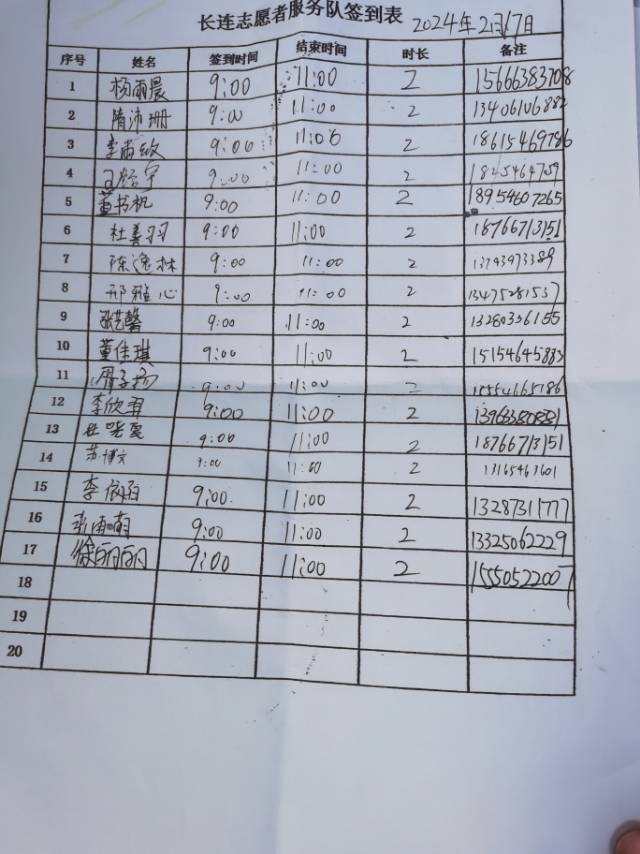 长连志愿者服务队签到表 2024年2月17日
序号 姓名 签到时间 结束时间 时长 备注
1 杨雨晨 9:00 11:00 2 15666383708
2 隋沛珊 9:00 11:00 2 13406106882
3 李雨敏 9:00 11:00 2 18615469786
4 9:00 11:00 2
5 董书帆 9:00 11:00 2 18954607265
6 杜姜羽 9:00 11:00 2 18766713151
7 陈逸林 9:00 11:00 2 13793973389
8 邢雅心 9:00 11:00 2 13475281537
9 张艺馨 9:00 11:00 2 13280336155
10 董佳琪 9:00 11:00 2 15154645833
11 9:00 11:00 2
12 李欣羽 9:00 11:00 2
13 9:00 11:00 2 18766713151
14 苏博文 9:00 11:00 2 13165463601
15 9:00 11:00 2 13287311777
16 9:00 11:00 2 13325062229
17 徐丽丽 9:00 11:00 2 15550522007
18
19
20